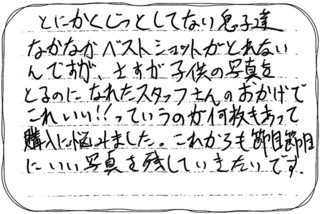 とにかくじっとしてない息子達
なかなかベストショットがとれない
んですが、さすが子供の写真を
とるのになれたスタッフさんのおかげで
これいい!!っていうのが何枚もあって
購入に悩みました。これからも節目節目
にいい写真を残していきたいです。